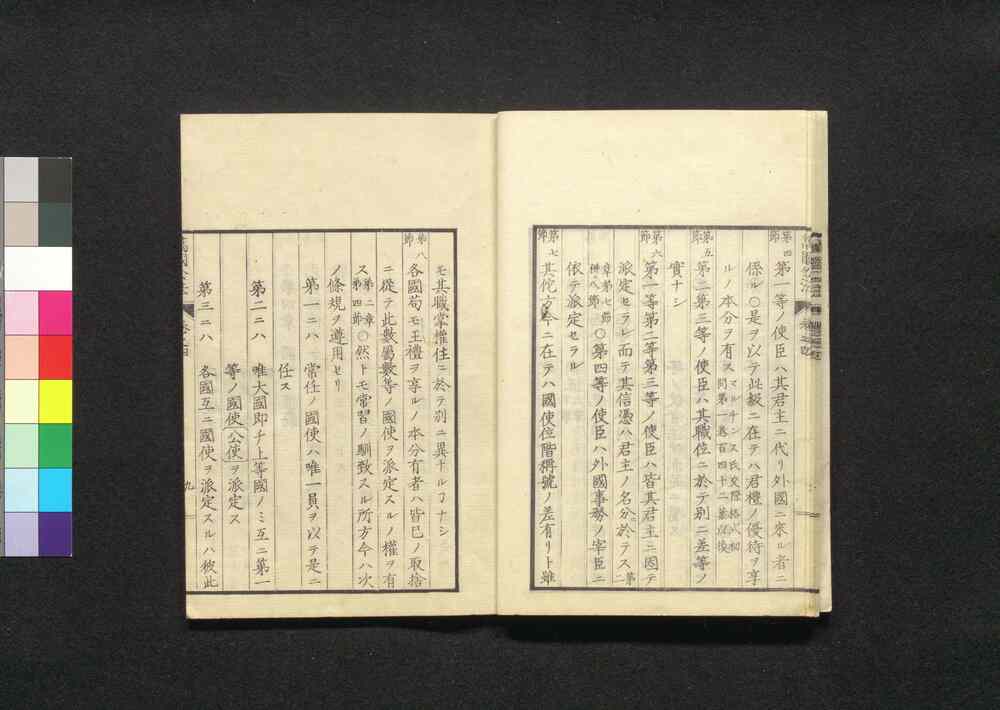 第四節
第一等ノ使臣ハ其君主ニ代リ外國ニ來ル者ニ
係ル〇是ヲ以テ此級ニ在テハ君禮ノ優待ヲ享
ルノ本分ヲ有ス
第五節
第二第三等ノ使臣ハ其職位ニ於テ別ニ差等ノ
實ナシ
第六節
第一等第二等第三等ノ使臣ハ皆其君主ニ因テ
派定セラレ而テ其信憑ハ君主ノ名分ニ於テス第二
章第七節
第八節
〇第四等ノ使臣ハ外國事務ノ宰臣ニ
依テ派定セラル
第七節
其佗方今ニ在テハ國使位階稱號ノ差有リト雖
モ其職掌權任ニ於テ別ニ異ナルヿナシ
第八節
各國苟モ王禮ヲ享ルノ本分有者ハ皆已ノ取捨
ニ從テ此數等ノ國使ヲ派定スルノ權ヲ有
ス第二章
第四節
〇然トモ常習ノ馴致スル所方今ハ次
ノ條規ヲ遵用セリ
第一ニハ 常任ノ國使ハ唯一員ヲ以テ是ニ
任ス
第二ニハ 唯大國即チ上等國ノミ互ニ第一
等ノ國使(公使)ヲ派定ス
第三ニハ 各國互ニ國使ヲ派定スルハ彼此
九